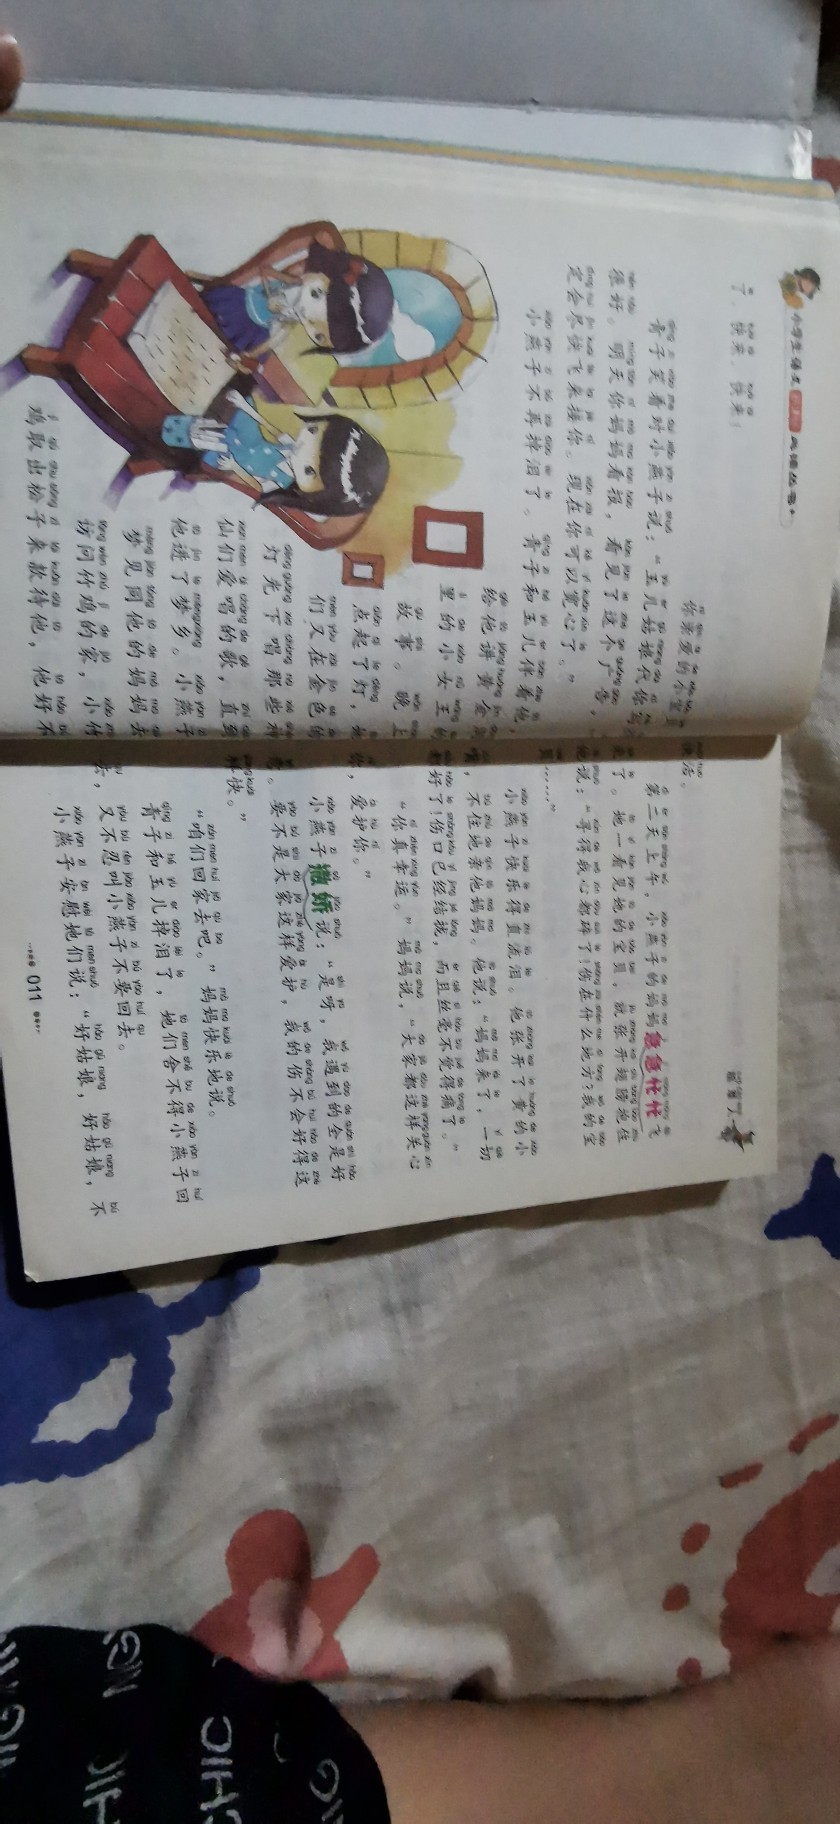 小学生语文
了，快来，快来！
你亲爱的小宝贝
青子笑着对小燕子说：“玉儿姑娘代你写
很好。明天你妈妈看报，看见了这个广告，
定会尽快飞来接你。现在你可以宽心了。”
小燕子不再掉泪了。青子和玉儿伴着他，
给他讲黄金
里的小女王的
故事。晚上
点起了灯，她
们又在金色的
灯光下唱那些神
仙们爱唱的歌，直到
他进了梦乡。小燕子
梦见同他的妈妈去
访问竹鸡的家，小竹
鸡取出松子来款待他，他好不
快活。
第二天上午，小燕子的妈妈急急忙忙飞
来了。她一看见她的宝贝，就张开翅膀抱住
他说：“寻得我心都碎了！伤在什么地方？我的宝
贝……”
小燕子快乐得直流泪。他张开了黄的小
嘴，不住地亲他妈妈。他说：“妈妈来了，一切
都好了！伤口已经结拢，而且丝毫不觉得痛了。”
“你真幸运。”妈妈说，“大家都这样关心
你，爱护你。”
小燕子撒娇说：“是呀，我遇到的全是好
意。要不是大家这样爱护，我的伤不会好得这
样快。”
“咱们回家去吧。”妈妈快乐地说。
青子和玉儿掉泪了，她们舍不得小燕子回
去，又不忍叫小燕子不要回去。
小燕子安慰她们说：“好姑娘，好姑娘，不
011